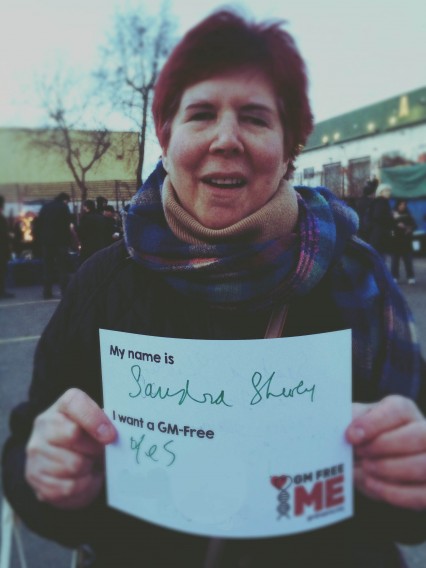 My name is
Sandra Shevey
I want a GM-Free
Yes
GM FREE
ME